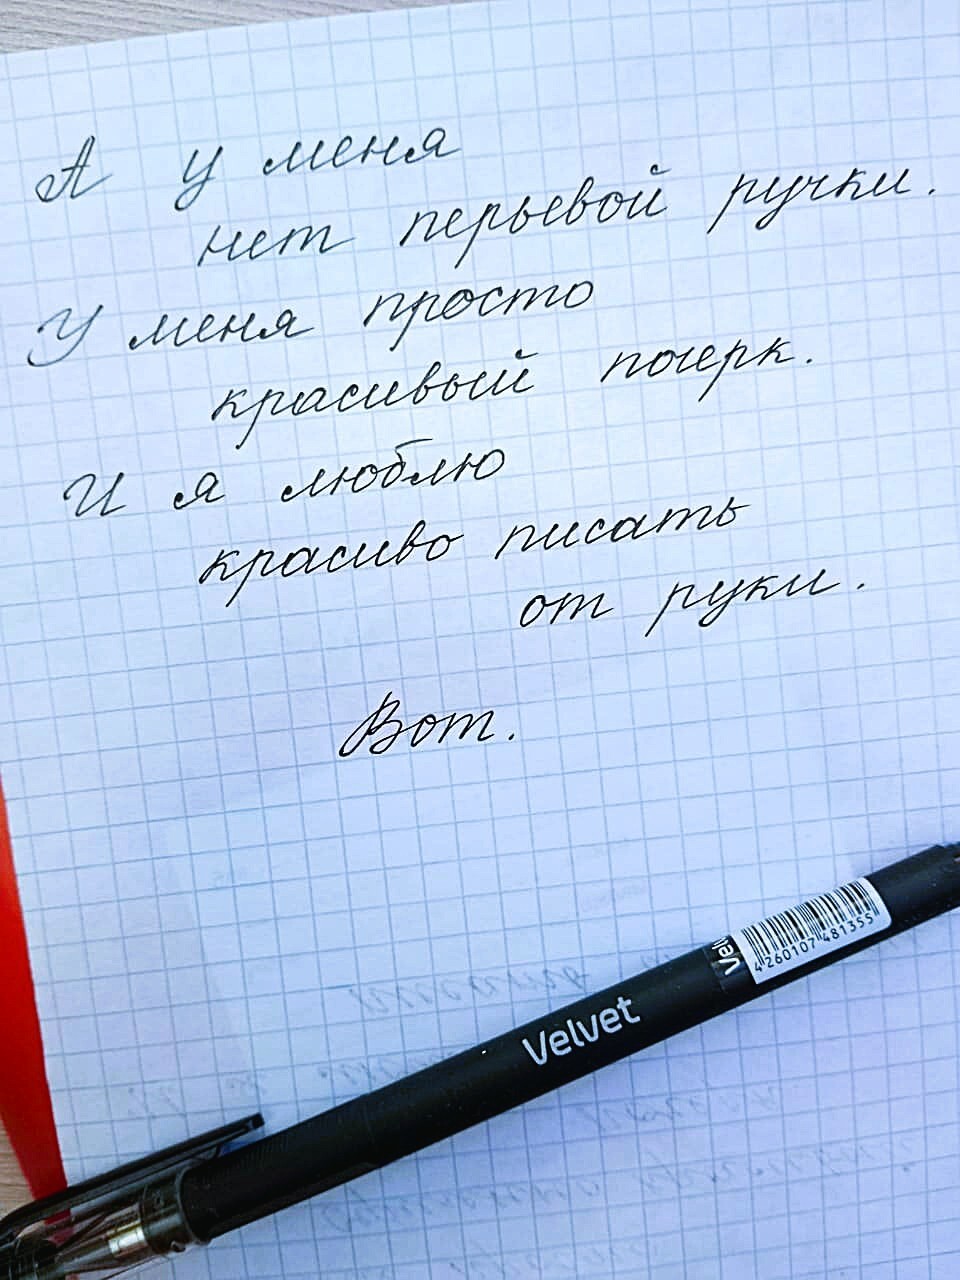 А у меня
нет перьевой ручки.
У меня просто
красивый почерк.
И я люблю
красиво писать
от руки.
Вот.
Velvet
4260107 481355